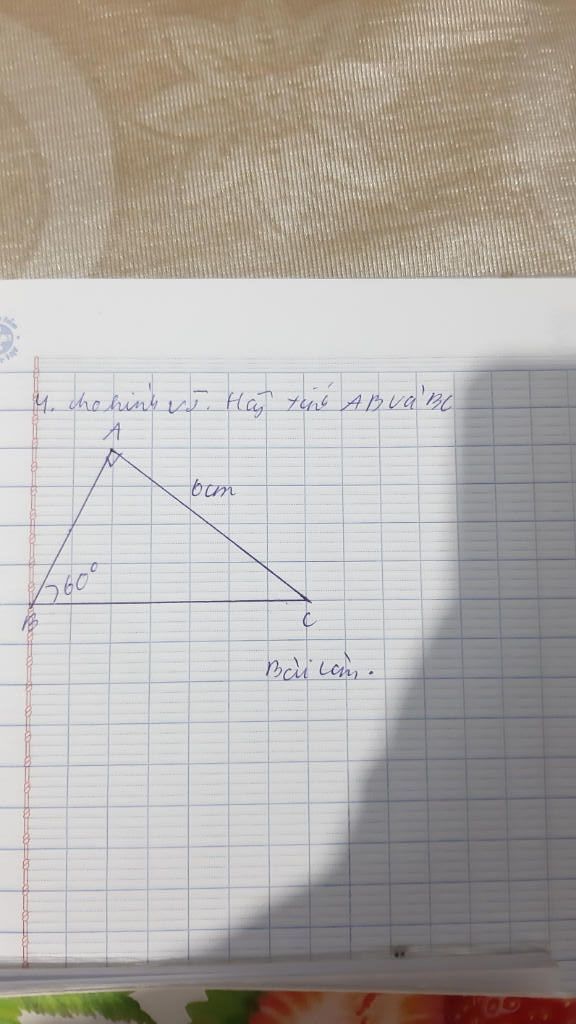 4. cho hình vẽ. Hãy tính AB và BC
A
6cm
60°
B
C
Bài làm.